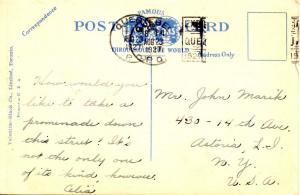 FAMOUS
POST
THROUGHOUT THE WORLD
Correspondence
Address Only
QUEBEC
1927
P.Q.
Valentine-Black Co., Limited, Toronto.
How would you
like to take a
promenade down
this street? It's
not the only one
of its kind however
Celia
Mr. John Marik
430-14th Ave.
Astoria, L.I.
N.Y.
U.S.A.